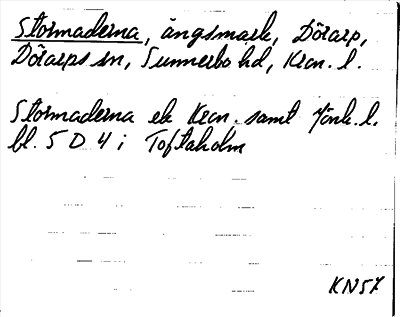 Stormaderna, ängsmark, Dörarp,
Dörarps sn, Sunnerbo hd, Kron. l.
Stormaderna ek Kron. samt Jönk. l.
bl. 5 D 4 i Toftaholm
KN57